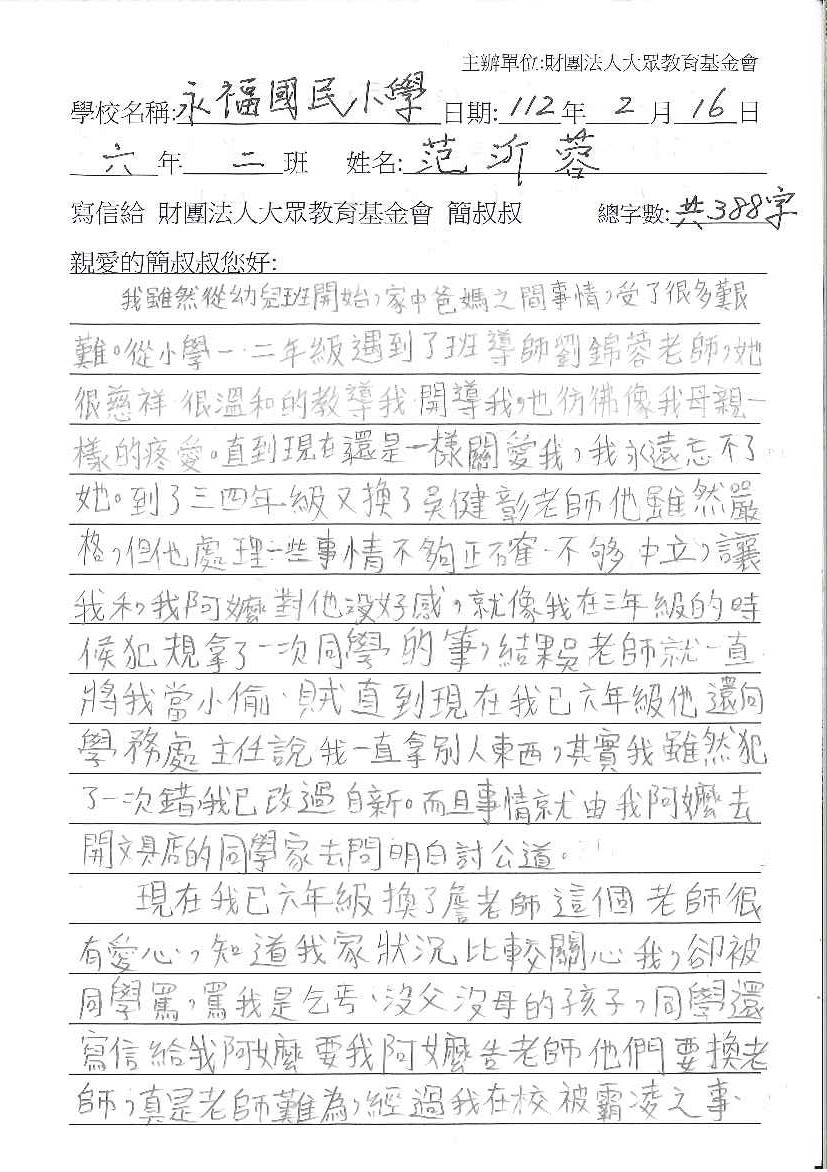 主辦單位:財團法人大眾教育基金會
學校名稱:永福國民小學 日期:112年 2 月 16 日
六 年 二 班 姓名: 范沂蓉
寫信給 財團法人大眾教育基金會 簡叔叔 總字數:共388字
親愛的簡叔叔您好:
我雖然從幼兒班開始,家中爸媽之間事情,受了很多艱
難。從小學一.二年級遇到了班導師劉錦蓉老師,她
很慈祥 很溫和的教導我.開導我,也彷彿像我母親一
樣的疼愛。直到現在還是一樣關愛我,我永遠忘不了
她。到了三四年級又換了吳健彰老師他雖然嚴
格,但他處理一些事情不夠正確.不够中立,讓
我和,我阿嬤對他沒好感,就像我在三年級的時
候犯規拿了一次同學的筆,結果吳老師就一直
將我當小偷.賊直到現在我已六年級他還向
學務處主任說我一直拿別人東西,其實我雖然犯
了一次錯,我已改過自新。而且事情就由我阿嬤去
開文具店的同學家去問明白討公道。
現在我已六年級換了詹老師這個老師很
有愛心,知道我家狀況比較關心我,卻被
同學罵,罵我是乞丐、沒父沒母的孩子,同學還
寫信給我阿嬤要我阿嬤告老師他們要換老
師,真是老師難為,經過我在校被霸凌之事.